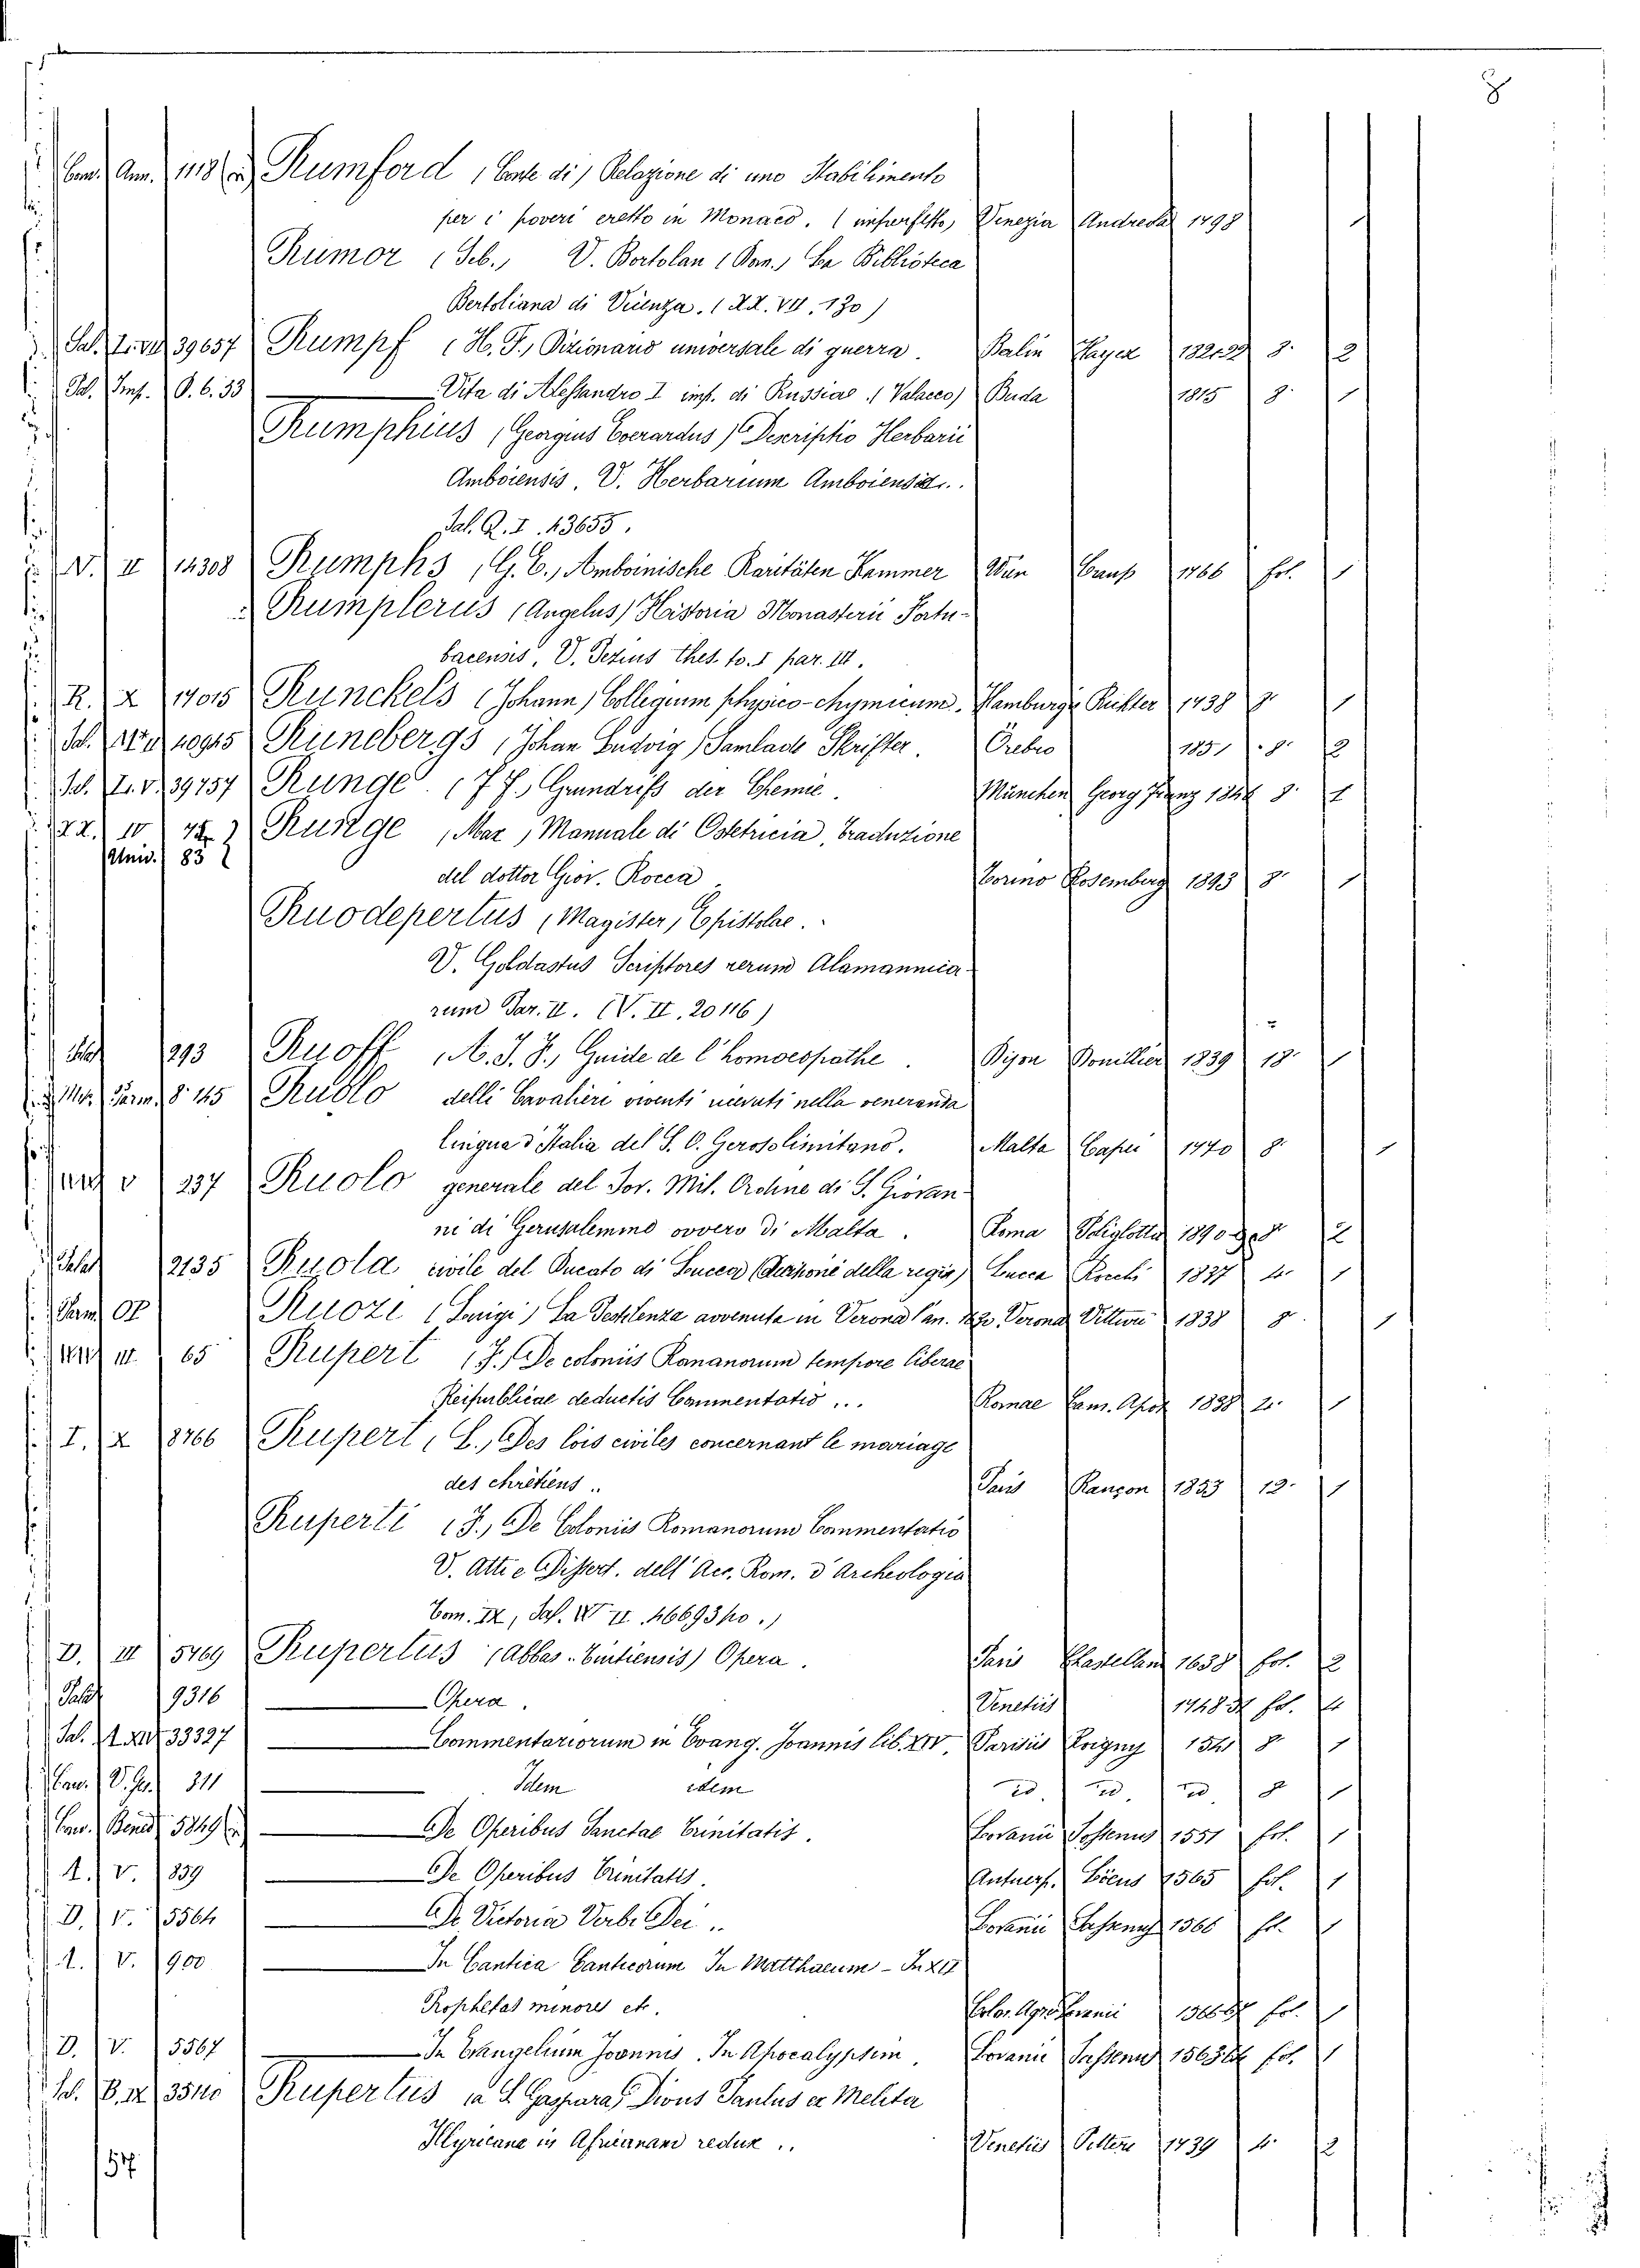 8
Com. Ann. 1118 Rumford (Conte di) Relazione di uno Stabilimento
per i poveri eretto in Monaco. (imperfetto) Venezia Andreola 1798 1
Rumor (Seb.) V. Bortolan (Dom.) La Biblioteca
Bertoliana di Vicenza. (XX. VII. 130)
Sal. L. VII 39657 Rumpf (H. F.) Dizionario universale di guerra. Berlin Hayer 1821.22 8. 2
Sal. Imp. O. 6. 33 — Vita di Alessandro I imp. di Russiae (Valacco) Buda 1815 8. 1
Rumphius (Georgius Everardus) Descriptio Herbarii
Amboiensis. V. Herbarium Amboiense.
Sal. Q. I. 43655.
V. II 14308 Rumphs (G. E.) Amboinische Raritäten Kammer Wien Gauss 1766 fol. 1
Rumplerus (Angelus) Historia Monasterii Formbacensis, V. Pezius Thes. to. I par. III.
R. X 17015 Runckels (Johann) Collegium physico-chymicum. Hamburg Richter 1738 8. 1
Sal. 40945 Runebergs (Johan Ludvig) Samlade Skrifter. Örebro 1851 8. 2
Sal. L. V. 39757 Runge (F F.) Grundriss der Chemie. München Georg Franz 1848 8. 1
XX. IV 75 Runge (Max) Manuale di Ostetricia, traduzione
Univ. 83 del dottor Giov. Rocca Torino Rosemberg 1893 8. 1
Ruodepertus (Magister) Epistolae.
V. Goldastus Scriptores rerum Alamannicarum
Par. II. (V. II. 20116)
293 Ruoff (A. J. F.) Guide de l'homoeopathe. Dijon Douillier 1839 18. 1
Mer. Parm. 8. 145 Ruolo delli Cavalieri viventi ricevuti nella veneranda
lingua d'Italia del S. O. Gerosolimitano. Malta Capaci 1770 8. 1
V 237 Ruolo generale del Sov. Mil. Ordine di S. Giovanni
di Gerusalemme ovvero di Malta. Roma Poliglotta 1890 8. 2
2135 Ruolo civile del Ducato di Lucca (Pensioni della regia) Lucca Rocchi 1827 4. 1
Ruozi (Luigi) La Pestilenza avvenuta in Verona l'an. 1630. Verona Vittori 1838 8. 1
III. 65 Rupert (J.) De coloniis Romanorum tempore liberae
Reipublicae deductis Commentatio... Romae Cam. Apos. 1838 4. 1
I. X 8766 Rupert (L.) Des lois civiles concernant le mariage
des chrétiens.. Paris Rançon 1853 12. 1
Ruperti (J.) De Coloniis Romanorum Commentatio
V. Atti e Dissert. dell'Acc. Rom. d'Archeologia
Tom. IX, Sal. IV II. 46693ho.)
D. III 5769 Rupertus (Abbas Tuitiensis) Opera. Paris Chastellain 1638 fol. 2
9316 — Opera. Venetiis 1748.51 fol. 4
Sal. 33327 — Commentariorum in Evang. Joannis lib. XIV. Parisiis Regny 1541 8 1
311 — Idem idem id. id. id. 8 1
Com. Bened. 5849 — De Operibus Sanctae Trinitatis. Lovanii Sassenus 1551 fol. 1
A. V. 899 — De Operibus Trinitatis. Antuerp. Loeus 1565 fol. 1
D. V. 5564 — De Victoria Verbi Dei.. Lovanii Sassenus 1566 fol. 1
A. V. 900 — In Cantica Canticorum In Matthaeum - In XII
Prophetas minores etc. Colon. Agr. Lovanii 1566.67 fol. 1
D. V. 5567 — In Evangelium Joannis. In Apocalypsim. Lovanii Sassenus 1563.64 fol. 1
Sal. 35110 Rupertus (a S. Gaspare) Divus Paulus ex Melita
Illyricana in Africanam redux.. Venetiis Pitteri 1739 4. 2
57